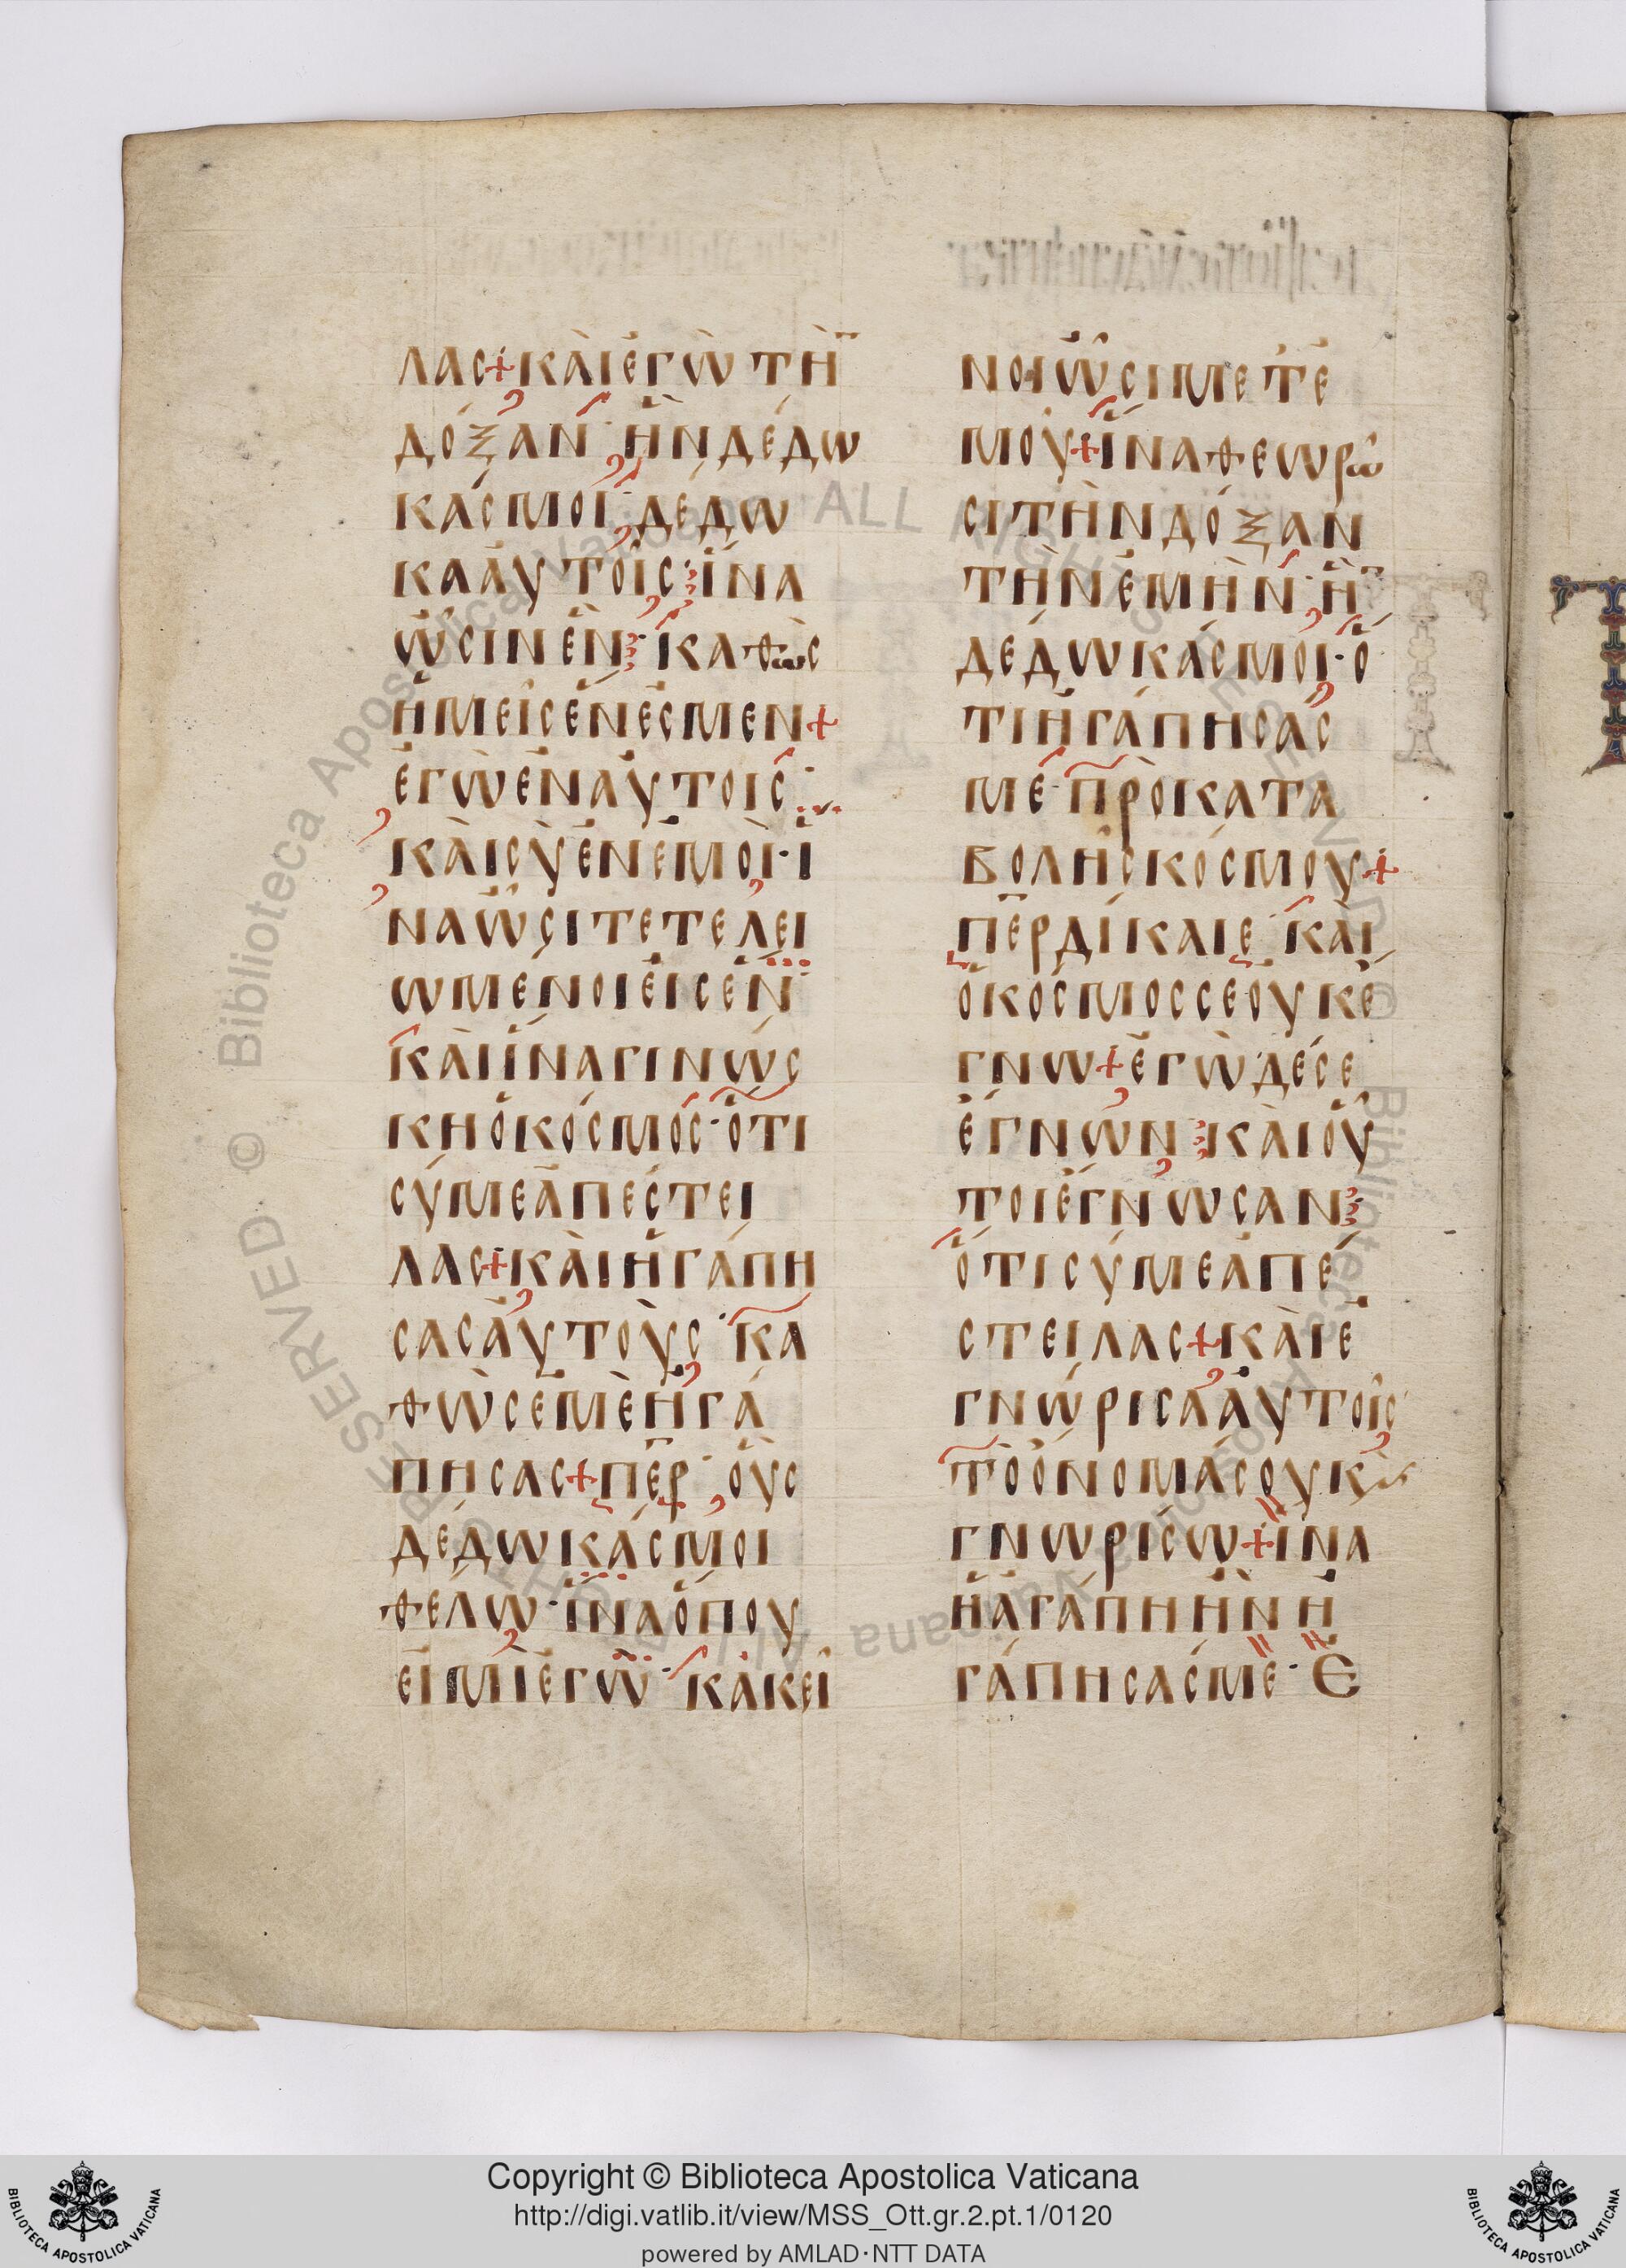 ΛΑС+ΚΑῚἘΓῺ ΤῊ
ΔΌΞΑΝ· ἫΝΔΈΔΩ
ΚΆСΜΟΙ· ΔΈΔΩ
ΚΑἈΥΤΟῖС· ἽΝΑ
ὮСΙΝἛΝ· ΚΑΘῺС
ἩΜΕῖСἝΝἘСΜΕΝ+
ἘΓῺἘΝΑὐΤΟΙС·
ΚΑῚСῪἘΝἘΜΟῚ· Ἵ
ΝΑὮСΙΤΕΤΕΛΕΙ
ΩΜΈΝΟΙἘΙСἝΝ·
ΚΑῚἽΝΑΓΙΝΏС
ΚΗὉΚΌСΜΟС· ὍΤΙ
СΎΜΕἈΠΈСΤΕΙ
ΛΑС+ΚΑῚἨΓΆΠΗ
СΑСἈΥΤΟῪС· ΚΑ
ΘῺСἘΜῈἨΓΆ
ΠΗСΑС+Π̅Ε̅Ρ· ΟὛС
ΔΈΔΩΚΆСΜΟΙ
ΘΈΛΩ· ἽΝΑὍΠΟΥ
ΕἸΜῚἘΓῺ· ΚἈΚΕῖ
ΝΟΙὮСΙΜΕΤ᾽Ἐ
ΜΟΥ+ἽΝΑΘΕΩΡῶ
СΙΤῊΝΔΌΞΑΝ
ΤῊΝἘΜῊΝ· Ἣ
ΔΈΔΩΚΆСΜΟΙ· Ὅ
ΤΙἨΓΆΠΗСΑС
ΜΕ· ΠΡῸΚΑΤΑ
ΒΟΛῆСΚΌСΜΟΥ+
Π̅Ε̅ΡΔΊΚΑΙΕ· ΚΑῚ
ὉΚΌСΜΟССΕΟΥΚἜ
ΓΝΩ+ἘΓῺΔΈСΕ
ἜΓΝΩΝ· ΚΑῚΟὟ
ΤΟΙἜΓΝΩСΑΝ·
ὍΤΙСΎΜΕἈΠΈ
СΤΕΙΛΑС+ΚΑῚἘ
ΓΝΏΡΙСΑἈΥΤΟῖС
ΤῸὌΝΟΜΆСΟΥΚϗ
ΓΝΩΡΊСΩ+ἽΝΑ
ἩἈΓΆΠΗἫΝἨ
ΓΆΠΗСΑСΜΕ· Ἐ
Copyright © Biblioteca Apostolica Vaticana
http://digi.vatlib.it/view/MSS_Ott.gr.2.pt.1/0120
powered by AMLAD·NTT DATA
BIBLIOTECA APOSTOLICA VATICANA
BIBLIOTECA APOSTOLICA VATICANA